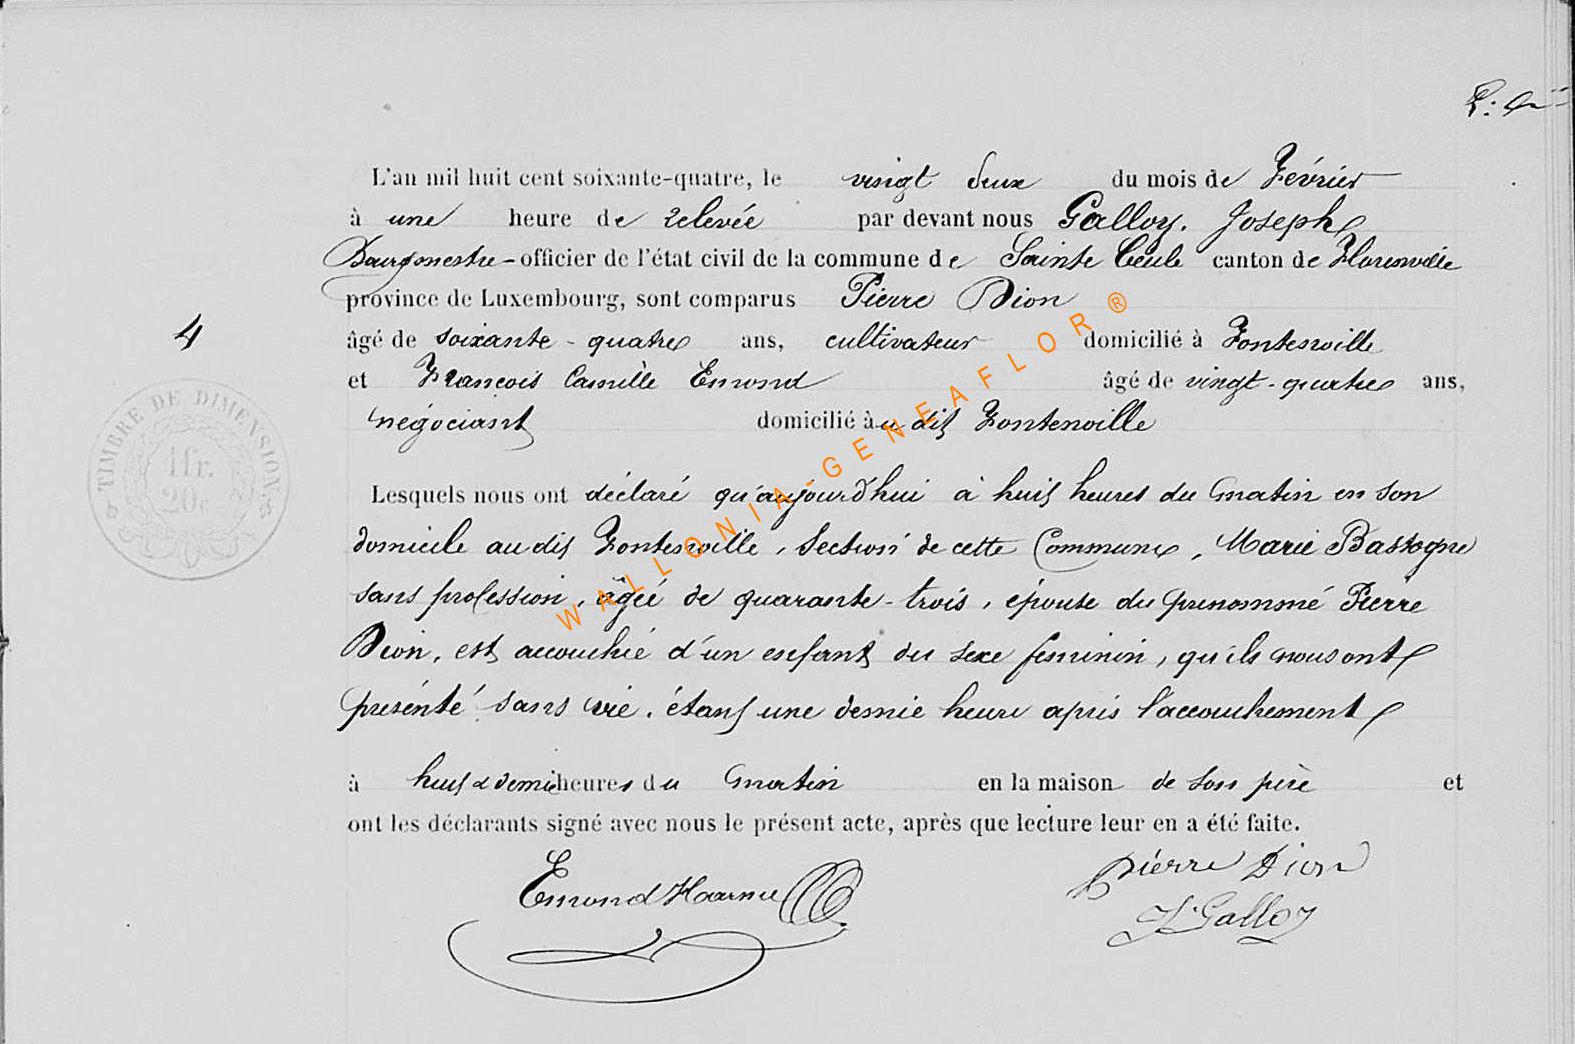 L'an mil huit cent soixante-quatre, le vingt deux du mois de Février
à une heure de relevée par devant nous Galloy, Joseph
Bourgmestre - officier de l'état civil de la commune de Sainte Cécile canton de Florenville
province de Luxembourg, sont comparus Pierre Dion
4
âgé de soixante-quatre ans, cultivateur domicilié à Fontenoille
et François Camille Emond âgé de vingt-quatre ans,
négociant domicilié au dit Fontenoille
TIMBRE DE DIMENSION
1 fr.
20c
Lesquels nous ont déclaré qu'aujourd'hui à huit heures du matin en son
domicile au dit Fontenoille, Section de cette Commune, Marie Bastogne
sans profession, âgée de quarante-trois, épouse du prénommé Pierre
Dion, est accouchée d'un enfant du sexe féminin, qu'ils nous ont
présenté sans vie, étant une demie heure après l'accouchement
à huit & demie heures du matin en la maison de son père et
ont les déclarants signé avec nous le présent acte, après que lecture leur en a été faite.
Emond Pierre Dion
J. Galloy
WALLONIA-GENEAFLOR®